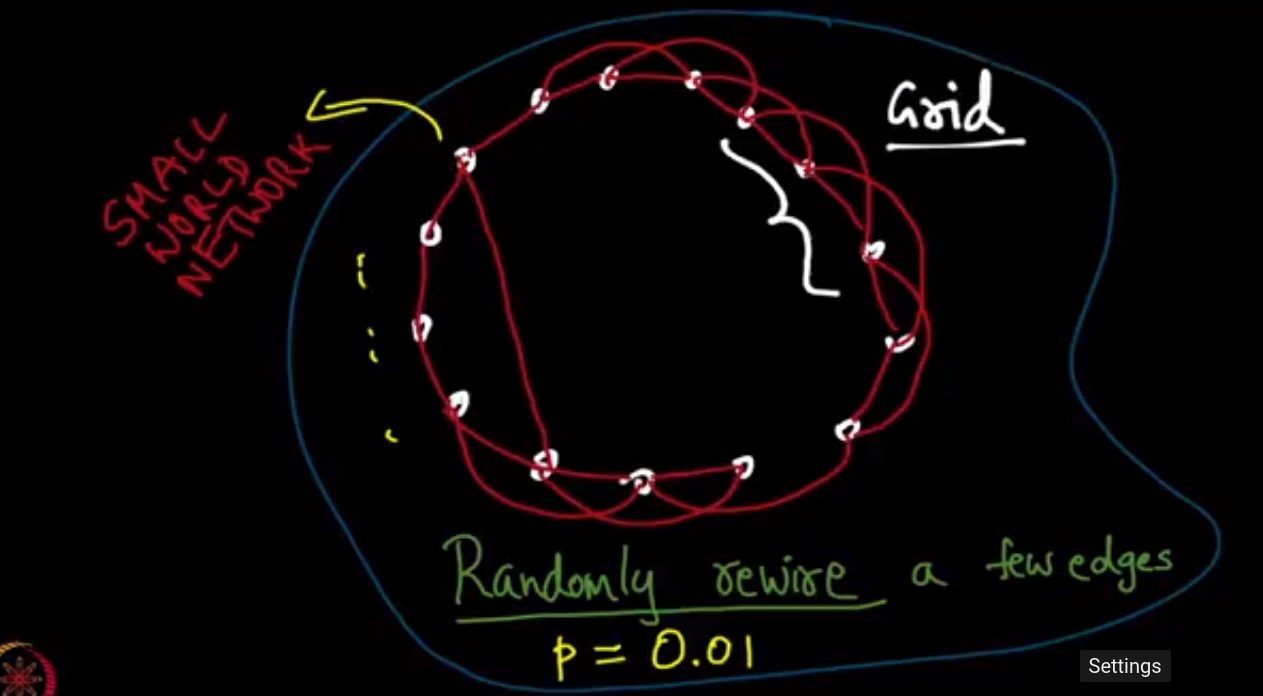 Grid
SMALL
WORLD
NETWORK
Randomly rewire a few edges
p = 0.01
Settings